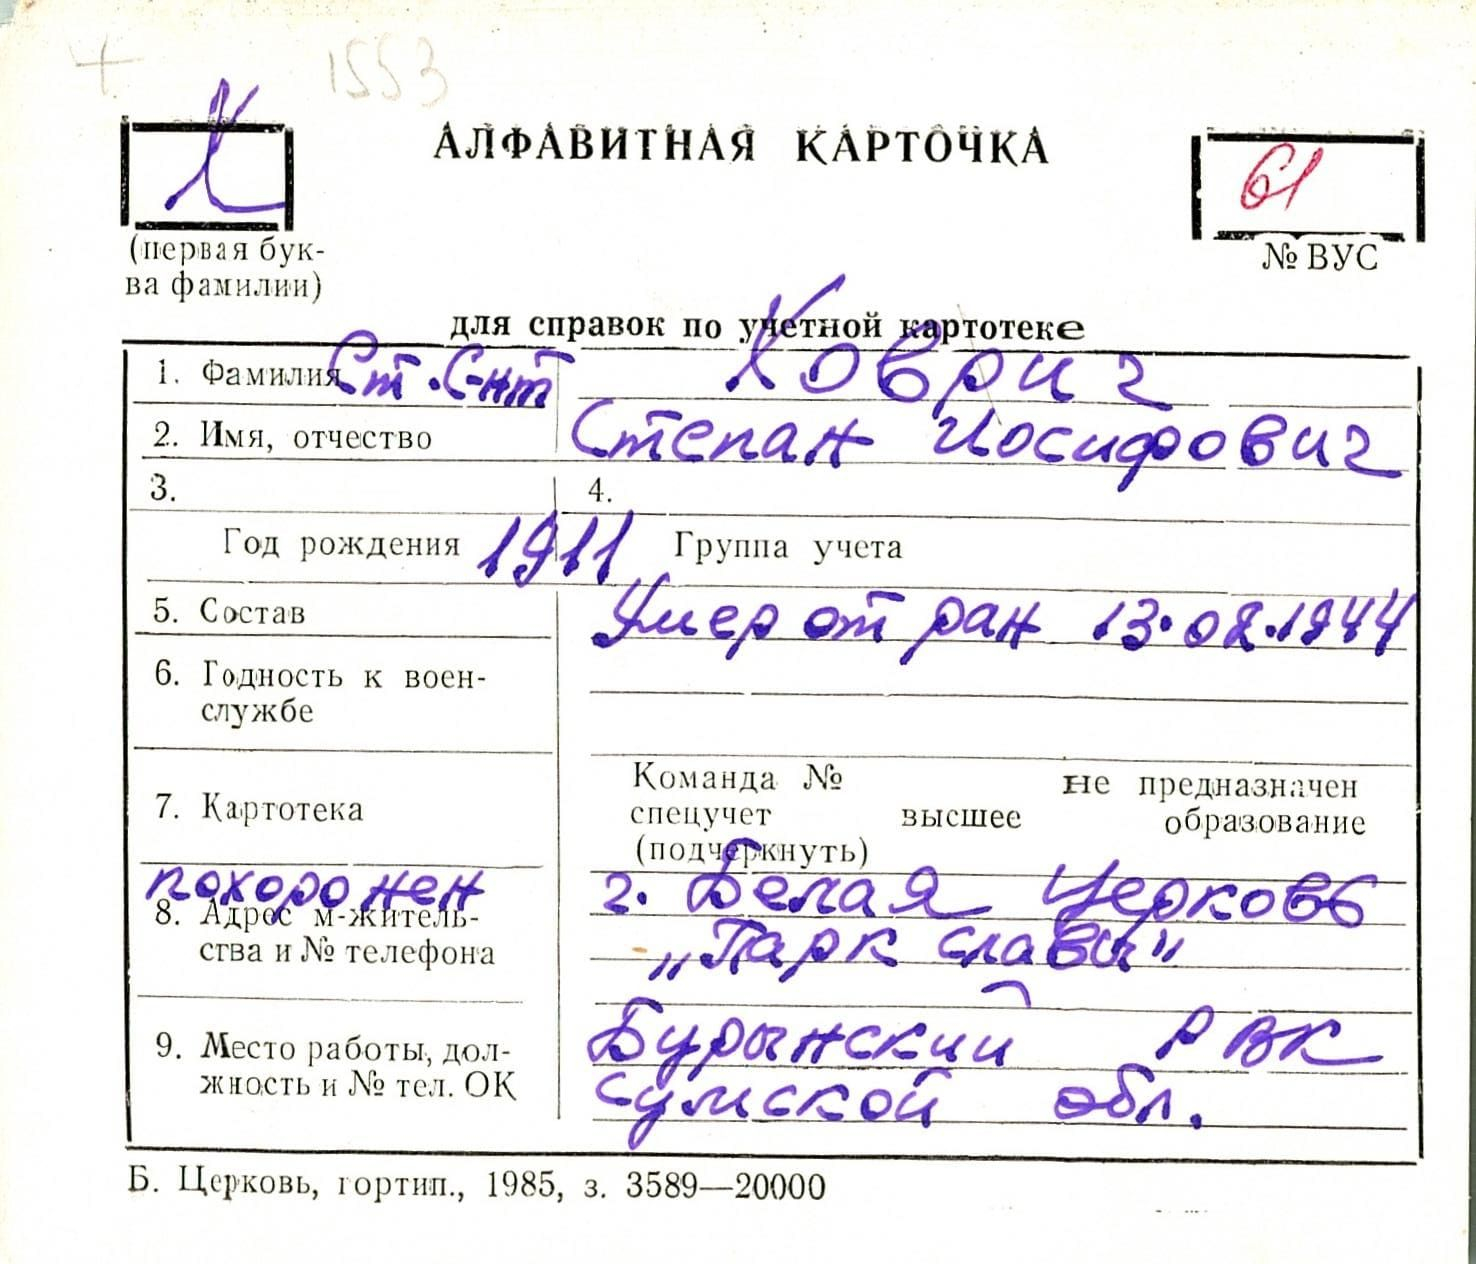 1553
Х
АЛФАВИТНАЯ КАРТОЧКА
61
(первая бук-
ва фамилии)
№ ВУС
для справок по учетной картотеке
1. Фамилия Ст. С-нт Ховрич
2. Имя, отчество Степан Иосифович
3. 4.
Год рождения 1911 Группа учета
5. Состав Умер от ран 13.02.1944
6. Годность к воен-
службе
Команда № не предназначен
7. Картотека спецучет высшее образование
(подчеркнуть)
похоронен г. Белая Церковь
8. Адрес м-житель-
ства и № телефона „Парк славы"
9. Место работы, дол- Бурынский РВК
жность и № тел. ОК Сумской обл.
Б. Церковь, гортип., 1985, з. 3589—20000